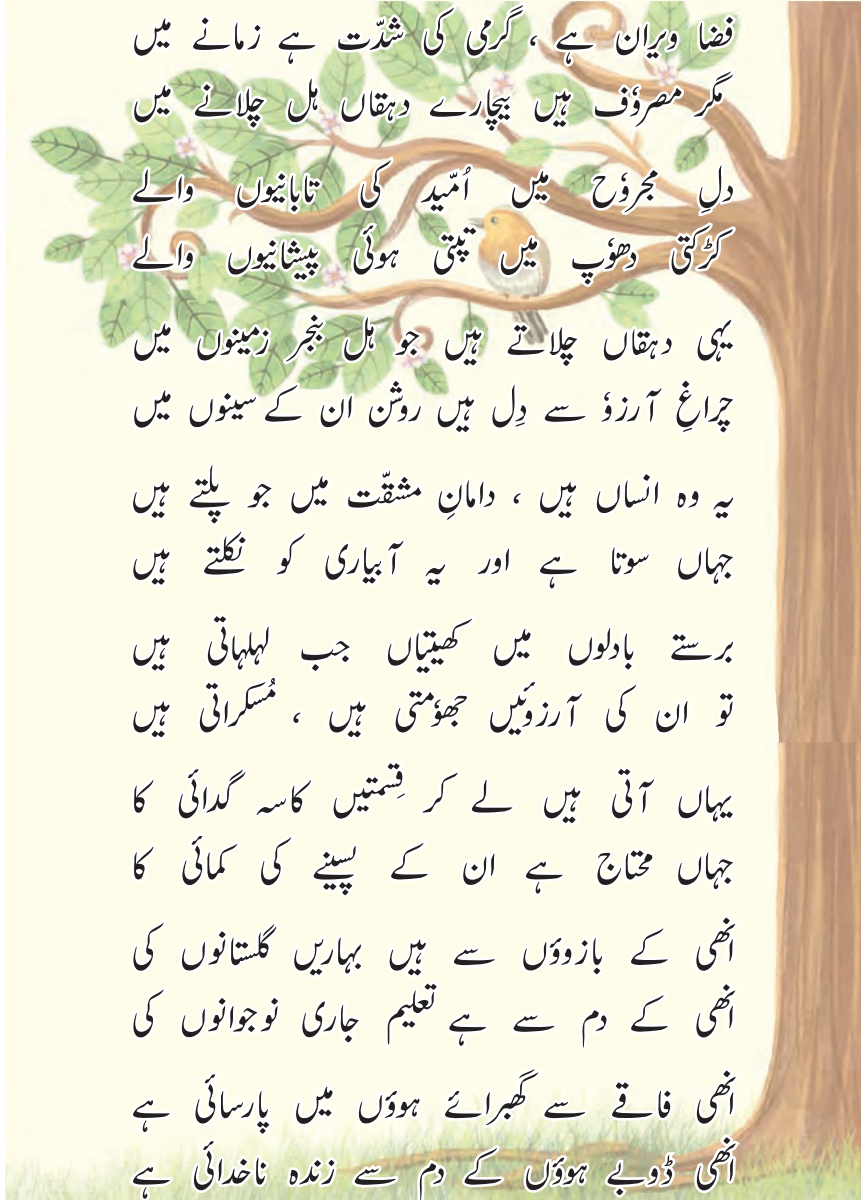 فضا ویران ہے ، گرمی کی شدّت ہے زمانے میں
مگر مصروٗف ہیں بیچارے دہقاں ہل چلانے میں
دلِ مجروٗح میں اُمّید کی تابانیوں والے
کڑکتی دھوٗپ میں تپتی ہوئی پیشانیوں والے
یہی دہقاں چلاتے ہیں جو ہل بنجر زمینوں میں
چراغِ آرزوٗ سے دِل ہیں روشن ان کے سینوں میں
یہ وہ انساں ہیں ، دامانِ مشقّت میں جو پلتے ہیں
جہاں سوتا ہے اور یہ آبیاری کو نکلتے ہیں
برستے بادلوں میں کھیتیاں جب لہلہاتی ہیں
تو ان کی آرزوئیں جھوٗمتی ہیں ، مُسکراتی ہیں
یہاں آتی ہیں لے کر قِسمتیں کاسہ گدائی کا
جہاں محتاج ہے ان کے پسینے کی کمائی کا
انھی کے بازوؤں سے ہیں بہاریں گلستانوں کی
انھی کے دم سے ہے تعلیم جاری نوجوانوں کی
انھی فاقے سے گھبرائے ہوؤں میں پارسائی ہے
انھی ڈوبے ہوؤں کے دم سے زندہ ناخدائی ہے